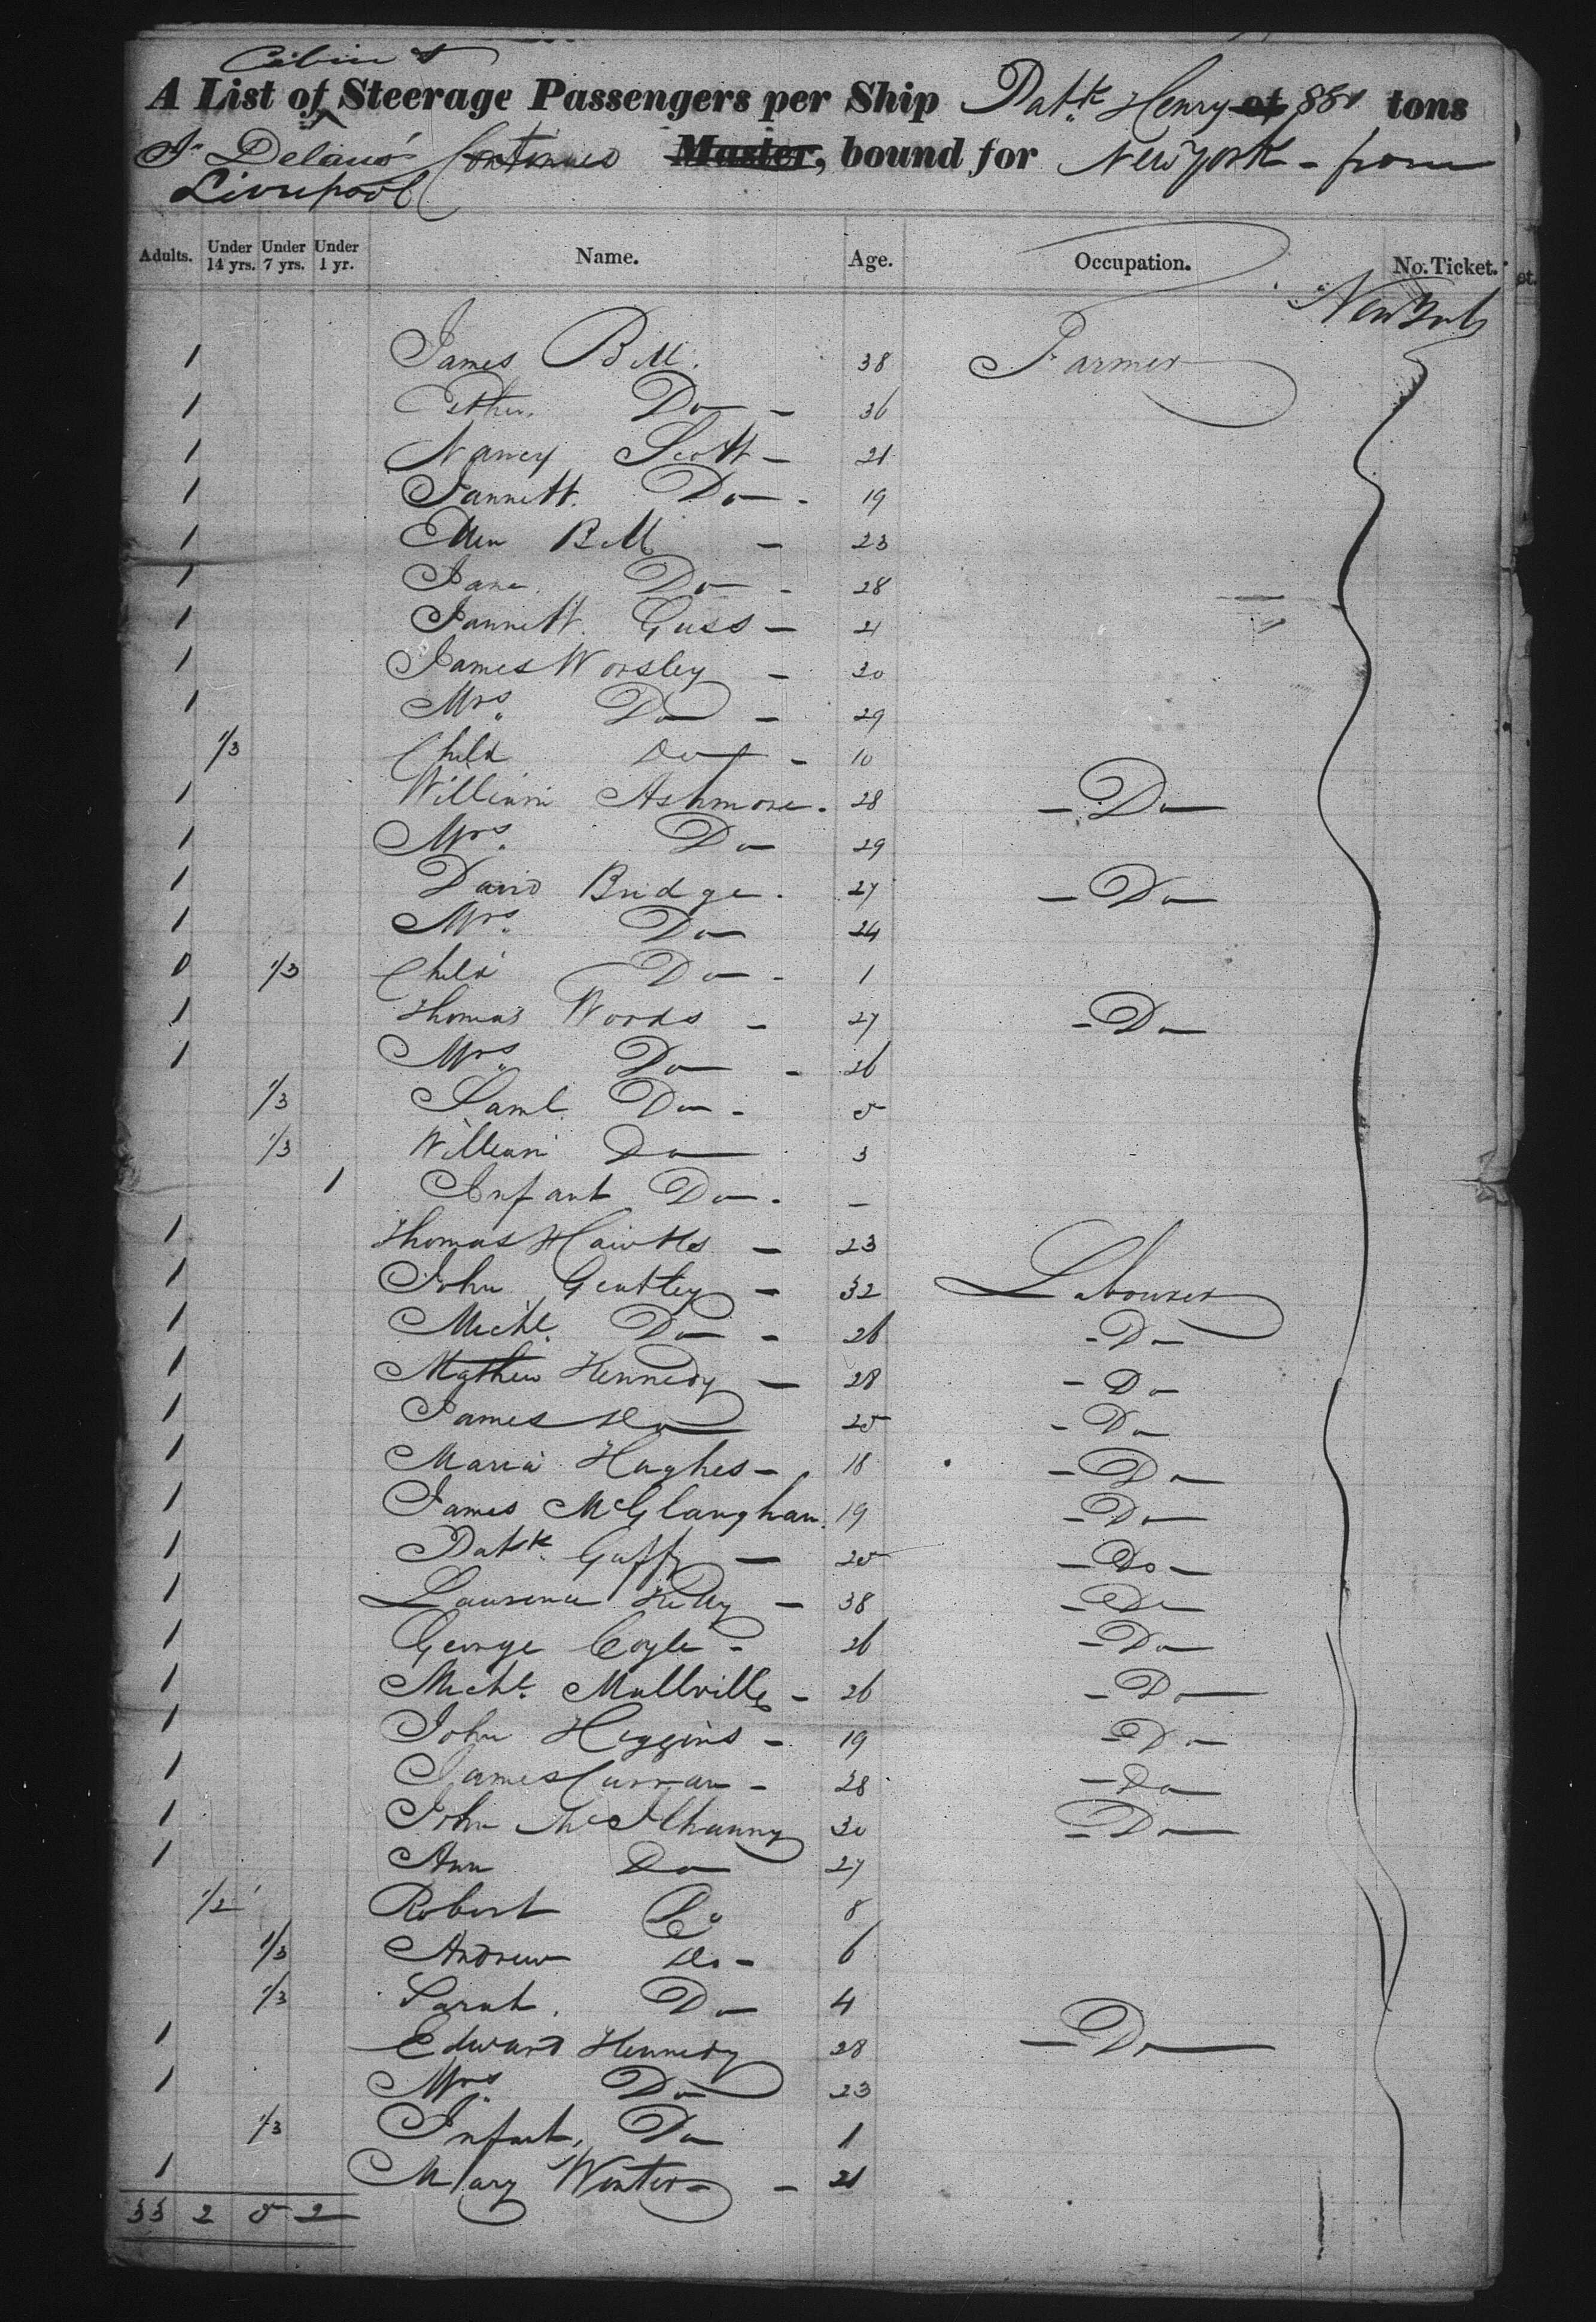 Cabin &
A List of Steerage Passengers per Ship Patk Henry of 881 tons
J. Delano Continued Master, bound for New York - from
Liverpool
Adults. Under 14 yrs. Under 7 yrs. Under 1 yr. Name. Age. Occupation. No. Ticket.
New York
1 James Bell. 38 Farmer
1 Esther Do - 36
1 Nancy Scott - 21
1 Jannett. Do - 19
1 Ellen Bell - 23
1 Jane. Do - 28
1 Jannett. Guss - 21
1 James Worsley - 30
1 Mrs. Do - 29
1/3 Child Do - 10
1 William Ashmore. 28 - Do
1 Mrs. Do 29
1 David Bridge. 27 - Do
1 Mrs. Do 24
0 1/3 Child Do - 1
1 Thomas Woods - 27 - Do
1 Mrs. Do - 26
1/3 Saml. Do - 5
1/3 William Do 3
1 Infant Do. -
1 Thomas - 23
1 John Gentley - 32 Labourer
1 Michl. Do - 26 - Do
1 Mathew Kennedy - 28 - Do
1 James Do 25 - Do
1 Maria Hughes - 18 - Do
1 James McGlanghan. 19 - Do
1 Patk. Gaffy - 25 - Do -
1 Laurence Kelly - 38 - Do
1 George Coyle - 26 - Do
1 Michl. Mullville - 26 - Do
1 John Higgins - 19 - Do
1 James Curran - 28 - Do
1 John McIlhanny 30 - Do
1 Ann Do 27
1/2 Robert Do 8
1/3 Andrew Do - 6
1/3 Sarah. Do 4
1 Edward Kennedy 28 - Do
1 Mrs. Do 23
1/3 Infant, Do 1
1 Mary Winters - 21
33 2 5 2